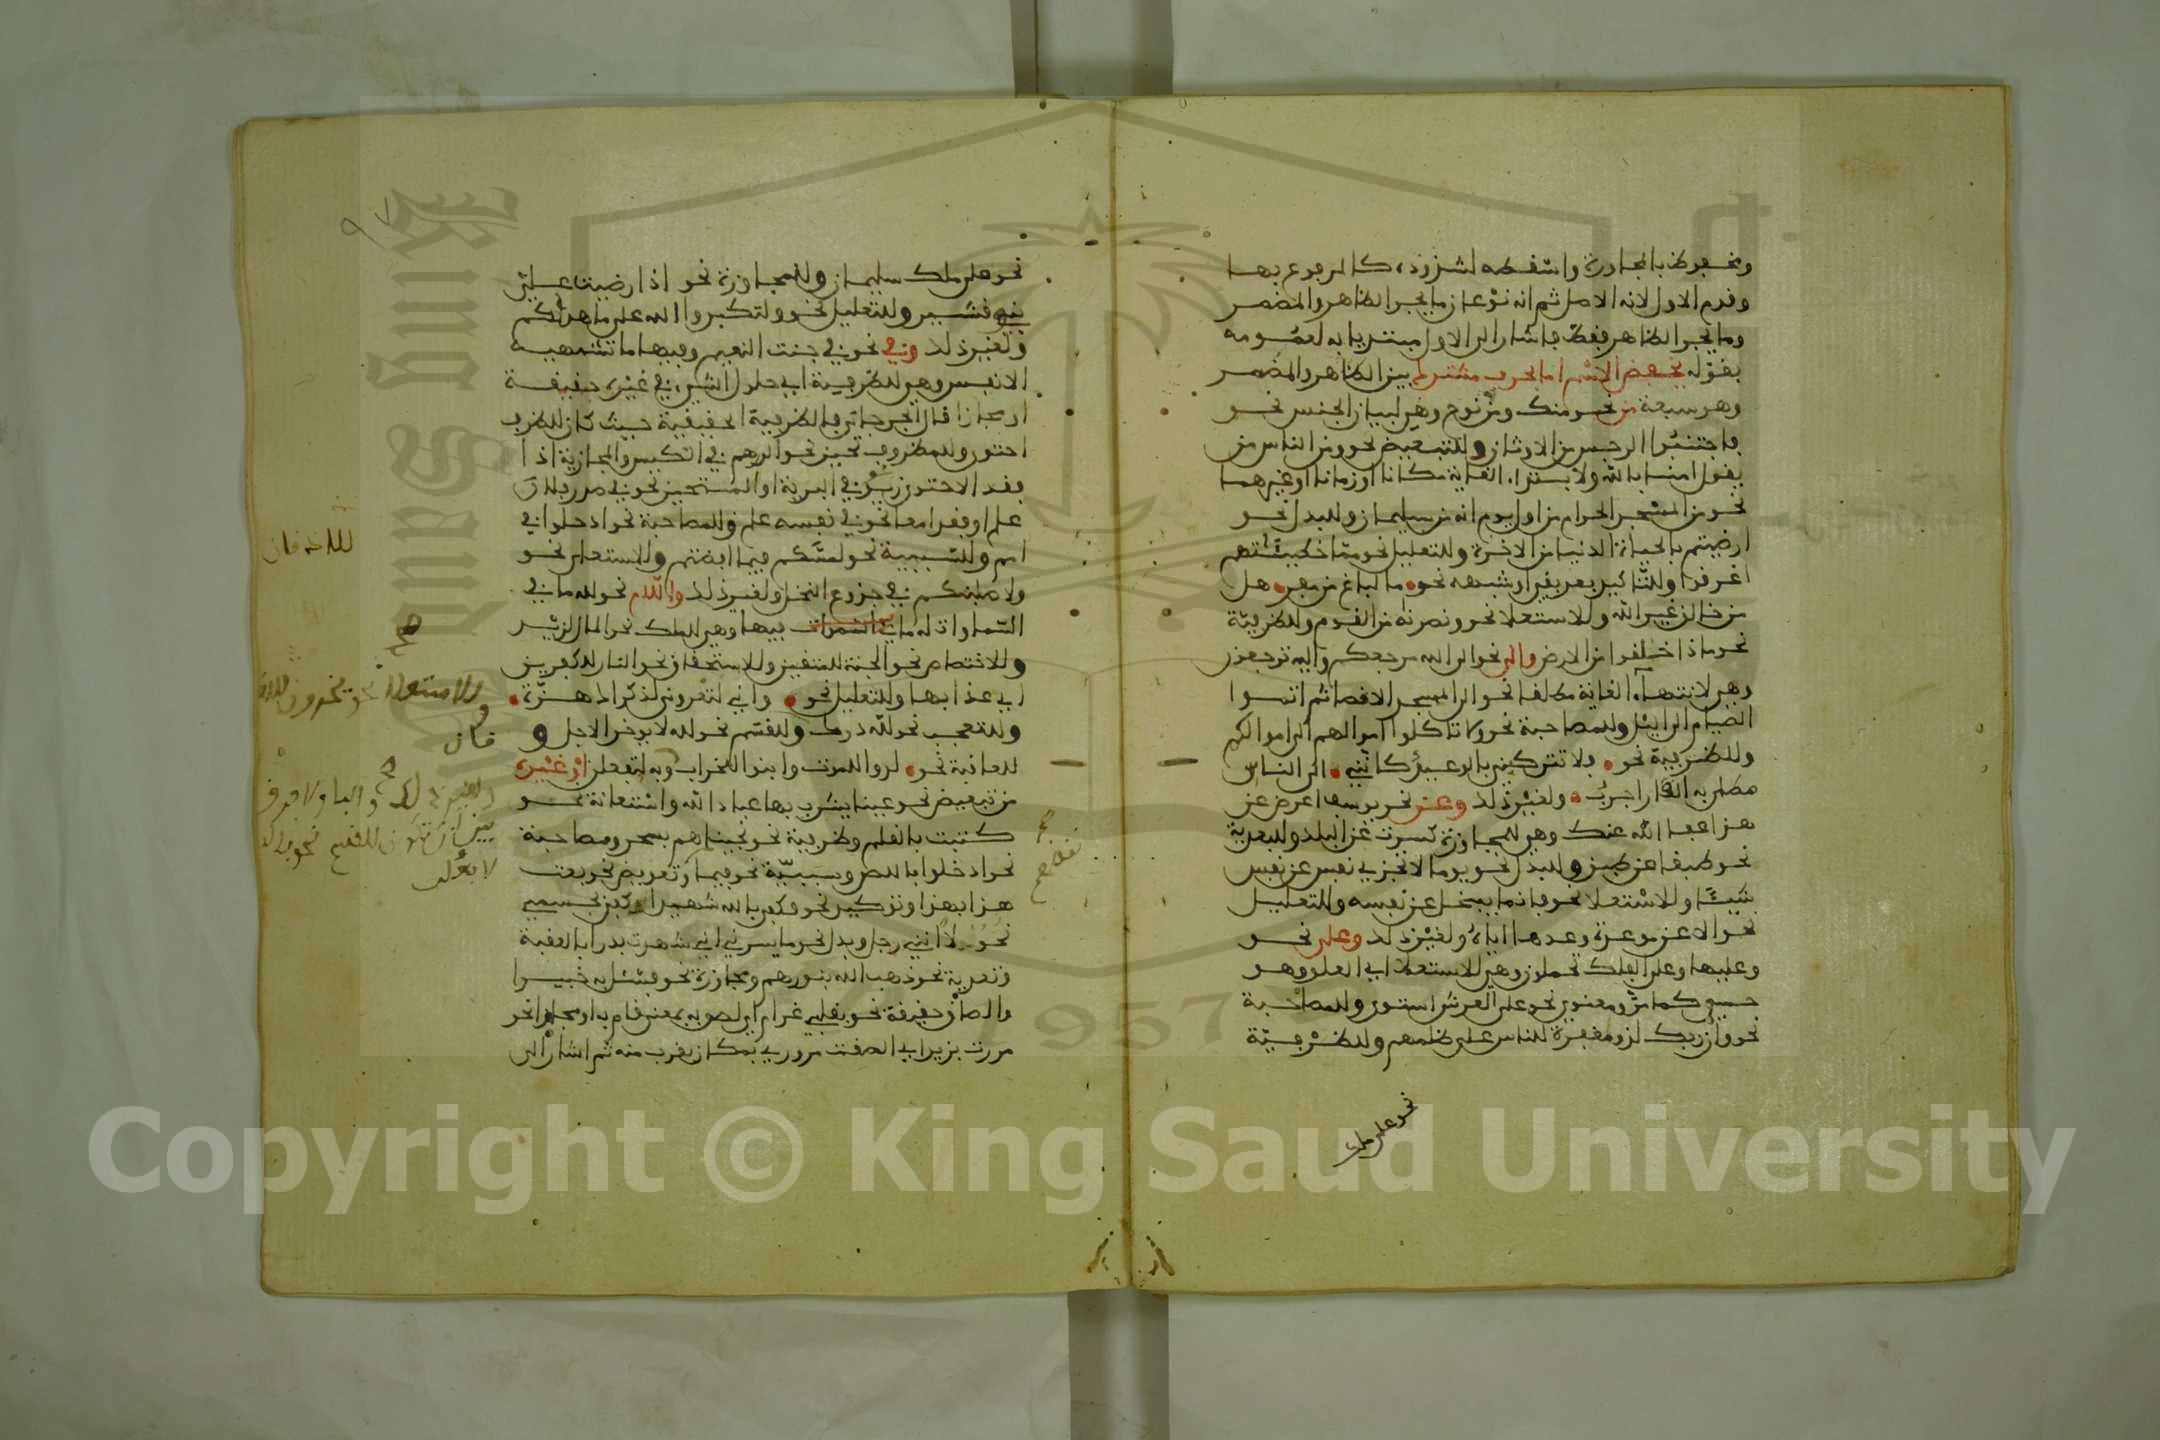 ومخفوض بالمجاورة واسقطه لشذوذه كالمرفوع بها
وقدم الاول لانه الاصل ثم انه نوعان ما يجر الظاهر والمضمر
وما يجر الظاهر فقط فاشار الى الاول مبتديا به لعمومه
بقوله يخفض الاسم اما بحرف مشترك بين الظاهر والمضمر
وهو سبعة من نحو منك ومن نوح وهي لبيان الجنس نحو
فاجتنبوا الرجس من الاوثان وللتبعيض نحو ومن الناس من
يقول امنا بالله ولابتداء الغاية مكانا او زمانا او غيرهما
نحو من المسجد الحرام من اول يوم انه من سليمان وللبدل نحو
ارضيتم بالحياة الدنيا من الاخرة وللتعليل نحو مما خطيئتهم
اغرقوا وللتاكيد بعد نفي او شبهه نحو ما لباغ من مفر هل
من خالق غير الله وللاستعلا نحو ونصرنه من القوم وللظرفية
نحو ماذا خلقوا من الارض والى نحو الى الله مرجعكم واليه ترجعون
وهي لانتهاء الغاية مطلقا نحو الى المسجد الاقصا ثم اتموا
الصيام الى اليل وللمصاحبة نحو ولا تاكلوا اموالهم الى اموالكم
وللظرفية نحو فلا تتركني بالوعيد كانني الى الناس
مطلي به القار اجرب ولغير ذلك وعن نحو يوسف اعرض عن
هذا عفا الله عنك وهي للمجاوزة كسرت عن البلد وللبعدية
نحو طبقا عن طبق وللبدل نحو يوما لا تجزي نفس عن نفس
شيئا وللاستعلا نحو فانما يبخل عن نفسه وللتعليل
نحو الا عن موعدة وعدها اياه ولغير ذلك وعلى نحو
وعليها وعلى الفلك تحملون وهي للاستعلا اي العلو وهو
حسي كما مر ومعنوي نحو على العرش استوى وللمصاحبة
نحو وان ربك لذو مغفرة للناس على ظلمهم وللظرفية
نحو على ملك
نحو على ملك سليمان وللمجاوزة نحو اذا رضيت علي
بنو قشير وللتعليل نحو ولتكبروا الله على ما هداكم
ولغير ذلك وفي نحو في جنت النعيم وفيها ما تشتهيه
الانفس وهي للظرفية اي حلول الشيء في غيره حقيقة
او مجازا قال الجرجاني فالظرفية الحقيقية حيث كان للظرف
احتوى وللمظروف تحيز نحو الدرهم في الكيس والمجازية اذا
فقد الاحتوى نحو زيد في البرية او المتحيز نحو في صدر فلان
علم او فقدا معا نحو في نفسه علم وللمصاحبة نحو ادخلوا في
امم وللسببية نحو لمسكم فيما افضتم وللاستعلى نحو
ولاصلبنكم في جذوع النخل ولغير ذلك واللام نحو لله ما في
السماوات له ما في السموات فيها وهي للملك نحو المال لزيد
وللاختصاص نحو الجنة للمتقين وللاستحقاق نحو النار للكفرين
اي عذابها وللتعليل نحو واني لتعروني لذكراك هزة
وللتعجب نحو لله درك وللقسم نحو لله لا يوخر الاجل و
للعاقبة نحو لدوا للموت وابنوا للخراب وبه لفعلن او غيره
من تبعيض نحو عينا يشرب بها عباد الله واستعانة نحو
كتبت بالقلم وظرفية نحو نجيناهم بسحر ومصاحبة
نحو ادخلوا باللص وسببية نحو فبما وتعويض نحو بعت
هذا بهذا وتوكيد نحو وكفى بالله شهيدا وكفى بجسمي
نحولا انني رجل وبدل نحو ما يسرني اني شهدت بدرا بالعقبة
وتعدية نحو ذهب الله بنورهم ومجاوزة نحو فسئل به خبيرا
والصاق حقيقة نحو بقلبي غرام اي لصق به بمعنى قام به او مجازا نحو
مررت بزيد اي الصقت مروري بمكان يقرب منه ثم اشار الى
٩٧
صح
وللاستعلا نحو يخرون